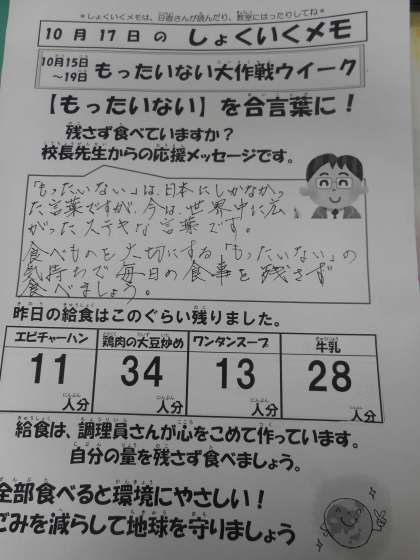 ＊しょくいくメモは、日直さんが読んだり、教室にはったりしてね＊
10月17日のしょくいくメモ
10月15日～19日 もったいない大作戦ウイーク
【もったいない】を合言葉に！
残さず食べていますか？
校長先生からの応援メッセージです。
「もったいない」は、日本にしかなかっ
た言葉ですが、今は、世界中に広
がったステキな言葉です。
食べものを大切にする「もったいない」の
気持ちで毎日の食事を残さず
食べましょう。
昨日の給食はこのぐらい残りました。
エビチャーハン 鶏肉の大豆炒め ワンタンスープ 牛乳
11人分 34人分 13人分 28人分
給食は、調理員さんが心をこめて作っています。
自分の量を残さず食べましょう。
全部食べると環境にやさしい！
ごみを減らして地球を守りましょう